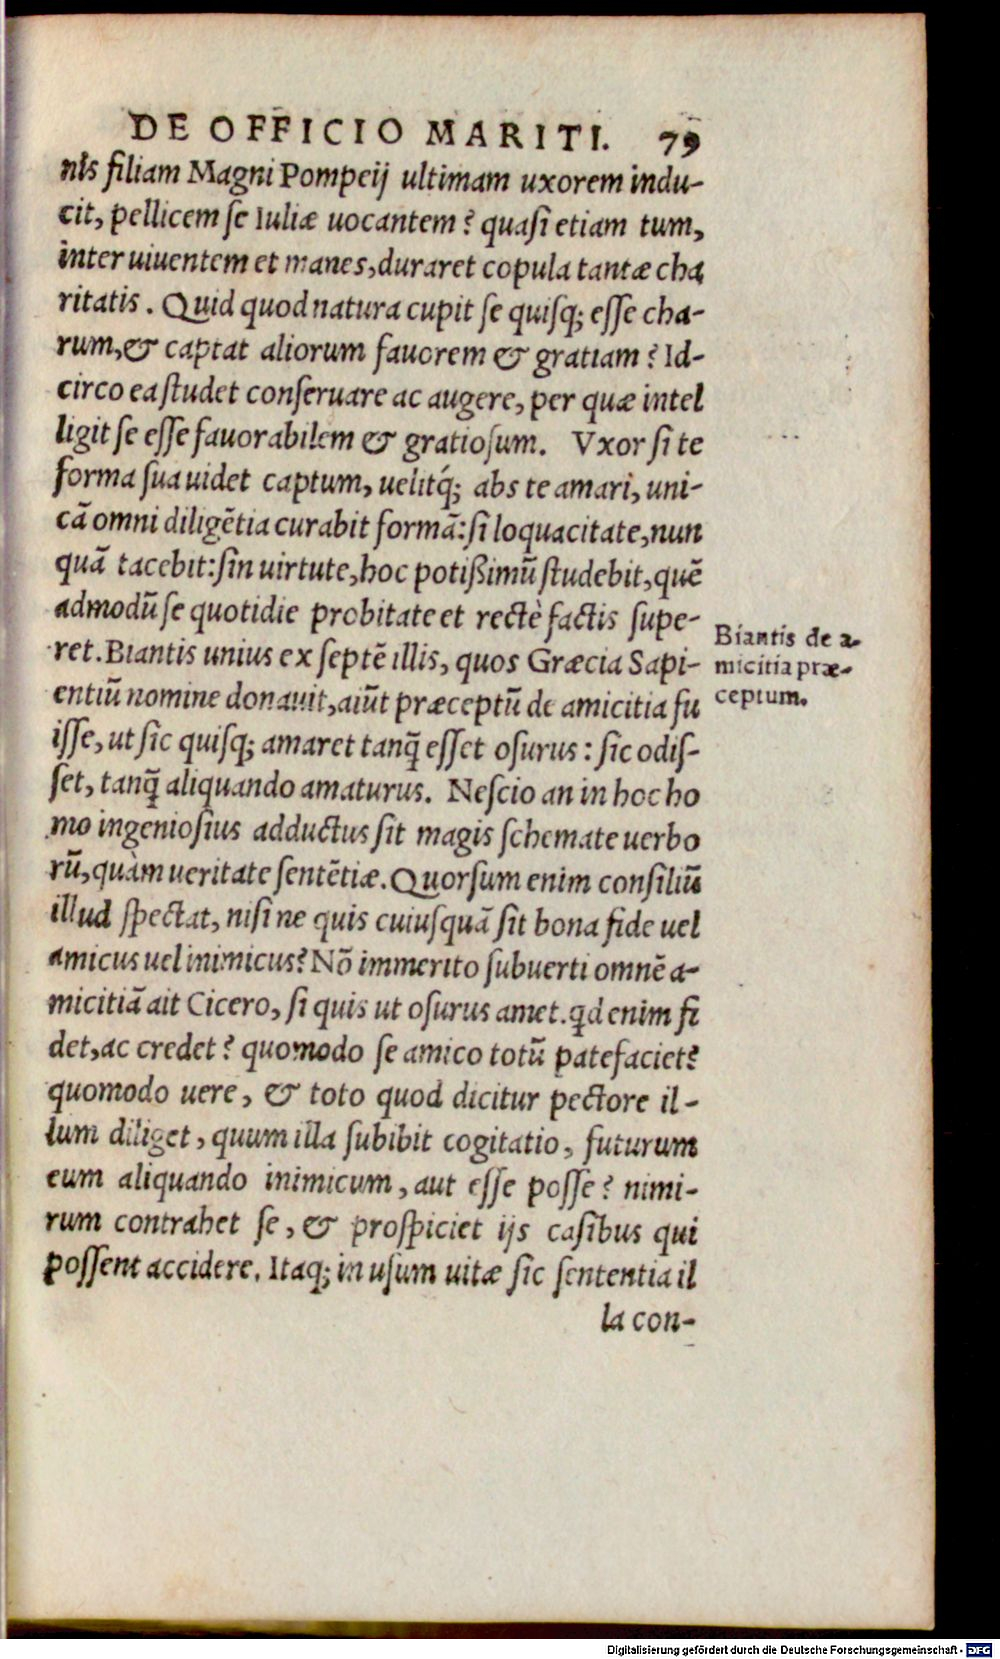 DE OFFICIO MARITI. 79
nis filiam Magni Pompeij ultimam uxorem indu-
cit, pellicem ſe Iuliæ uocantem? quaſi etiam tum,
inter uiuentem et manes, duraret copula tantæ cha
ritatis. Quid quod natura cupit ſe quiſq; eſſe cha-
rum, & captat aliorum fauorem & gratiam? Id-
circo ea ſtudet conſeruare ac augere, per quæ intel
ligit ſe eſſe fauorabilem & gratioſum. Vxor ſi te
forma ſua uidet captum, uelitq́; abs te amari, uni-
cā omni diligētia curabit formā: ſi loquacitate, nun
quā tacebit: ſin uirtute, hoc potißimū ſtudebit, quē
admodū ſe quotidie probitate et rectè factis ſupe-
ret. Biantis unius ex ſeptē illis, quos Græcia Sapi-
entiū nomine donauit, aiūt præceptū de amicitia fu
iſſe, ut ſic quiſq; amaret tanq̃ eſſet oſurus: ſic odiſ-
ſet, tanq̃ aliquando amaturus. Neſcio an in hoc ho
mo ingenioſius adductus ſit magis ſchemate uerbo
rū, quàm ueritate ſentētiæ. Quorſum enim conſiliū
illud ſpectat, niſi ne quis cuiuſquā ſit bona fide uel
amicus uel inimicus? Nō immerito ſubuerti omnē a-
micitiā ait Cicero, ſi quis ut oſurus amet. qd enim fi
det, ac credet? quomodo ſe amico totū patefaciet?
quomodo uere, & toto quod dicitur pectore il-
lum diliget, quum illa ſubibit cogitatio, futurum
eum aliquando inimicum, aut eſſe poſſe? nimi-
rum contrahet ſe, & proſpiciet ijs caſibus qui
poſſent accidere. Itaq; in uſum uitæ ſic ſententia il
la con-
Biantis de a-
micitia præ-
ceptum.
Digitalisierung gefördert durch die Deutsche Forschungsgemeinschaft - DFG